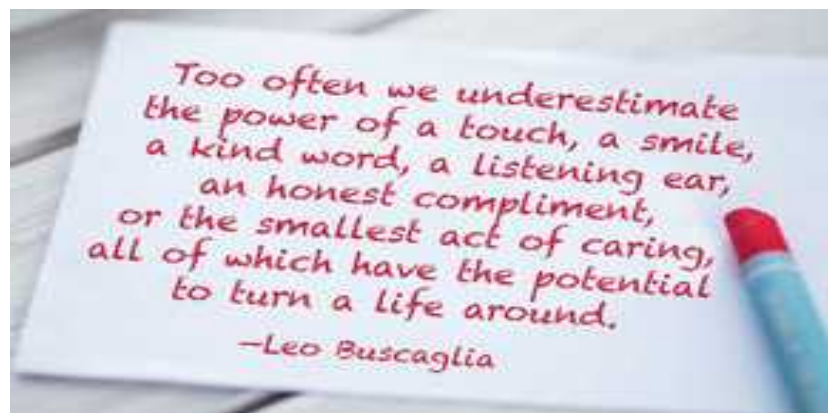 Too often we underestimate
the power of a touch, a smile,
a kind word, a listening ear,
an honest compliment,
or the smallest act of caring,
all of which have the potential
to turn a life around.
—Leo Buscaglia